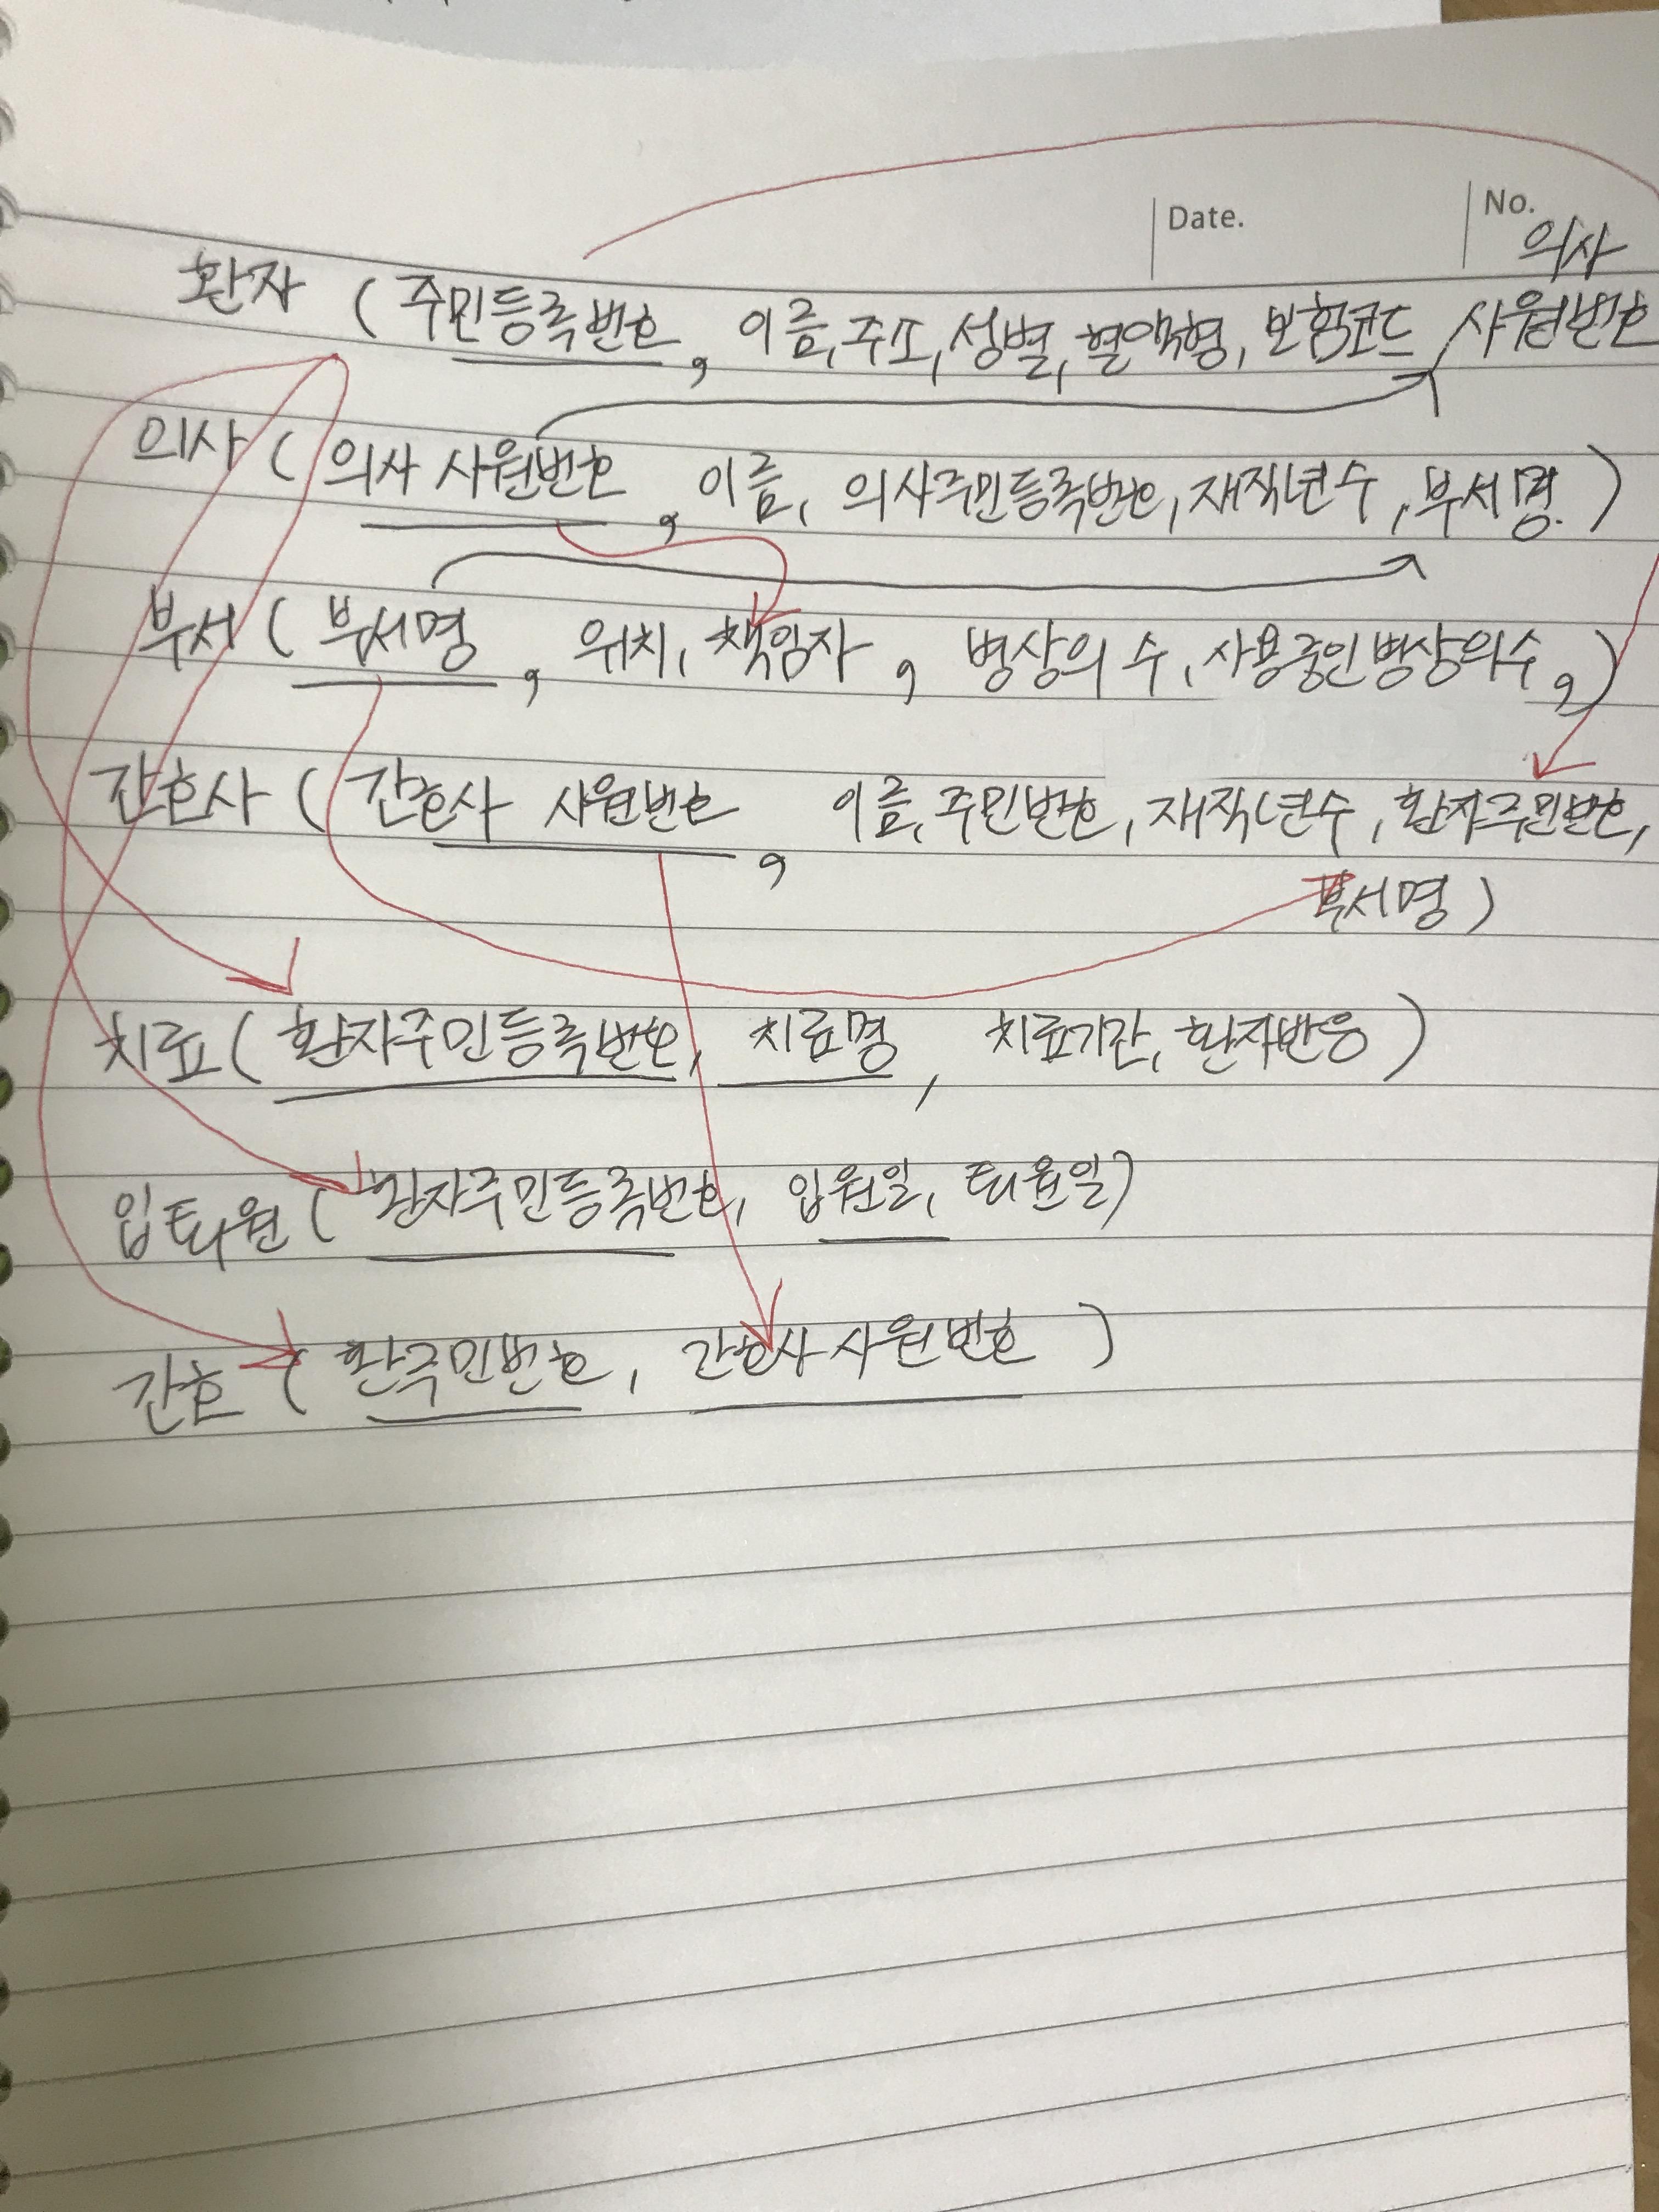 Date.
No.
의사
환자 ( 주민등록번호, 이름, 주소, 성별, 혈액형, 보험코드 사원번호
의사 ( 의사 사원번호, 이름, 의사주민등록번호, 재직년수, 부서명.)
부서 ( 부서명, 위치, 책임자, 병상의 수, 사용중인병상의수, )
간호사 ( 간호사 사원번호, 이름, 주민번호, 재직년수, 환자주민번호,
부서명 )
치료 ( 환자주민등록번호, 치료명, 치료기간, 환자반응 )
입퇴원 ( 환자주민등록번호, 입원일, 퇴원일)
간호 ( 환주민번호, 간호사사원번호 )